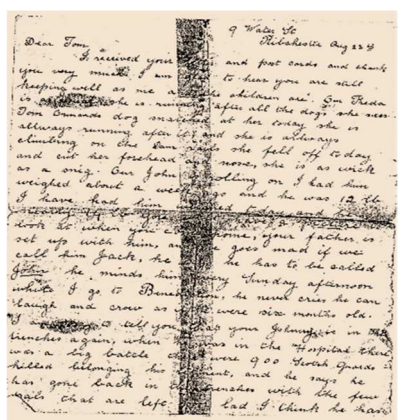 9 Water St
Ribchester Aug 22nd
Dear Tom,
I received your and post cards and thank
you very much I am to hear you are still
keeping well as me a the children are. Our Freda
is she is runing after all the dogs she sees
Tom dog at her today she is
allways running after it and she is allways
climbing on the and she fell off today
and cut her forehead and nose, she is as wick
as a snig. Our John rolling on I had him
weighed about a week ago and he was 12 lb
I have had him and
look at when you come, your father is
set up with him, an he goes mad if we
call him Jack, he he has to be called
John he minds him every Sunday afternoon
while I go to Bene on, he never cries he can
laugh and crow as if were six months old.
I to tell you your Johnny is in the
trenches again, when he was in the Hospital there
was a big battle were 900 Scotch Guards
killed belonging his ent, and he says he
has gone back in t trenches with the few
pals that are left. had I think he have